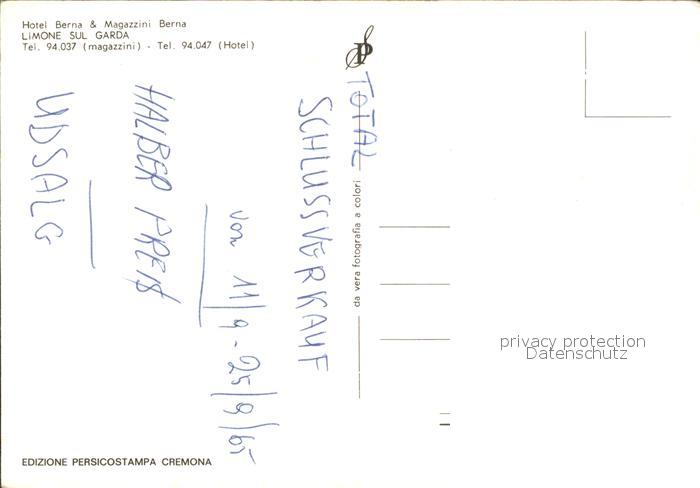 Hotel Berna & Magazzini Berna
LIMONE SUL GARDA
Tel. 94.037 (magazzini) - Tel. 94.047 (Hotel)
TOTAL
SCHLUSSVERKAUF
von 11/9-25/9/65
HALBER PREIS
UDSALG
da vera fotografia a colori
privacy protection
Datenschutz
EDIZIONE PERSICOSTAMPA CREMONA